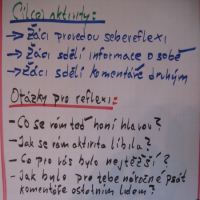 Cíl(e) aktivity:
→ Žáci provedou sebereflexi
→ Žáci sdělí informace o sobě
→ Žáci sdělí komentáře druhým
Otázky pro reflexi:
- Co se vám teď honí hlavou?
- Jak se vám aktivita líbila?
- Co pro vás bylo nejtěžší?
- Jak bylo pro tebe náročné psát
komentáře ostatním lidem?